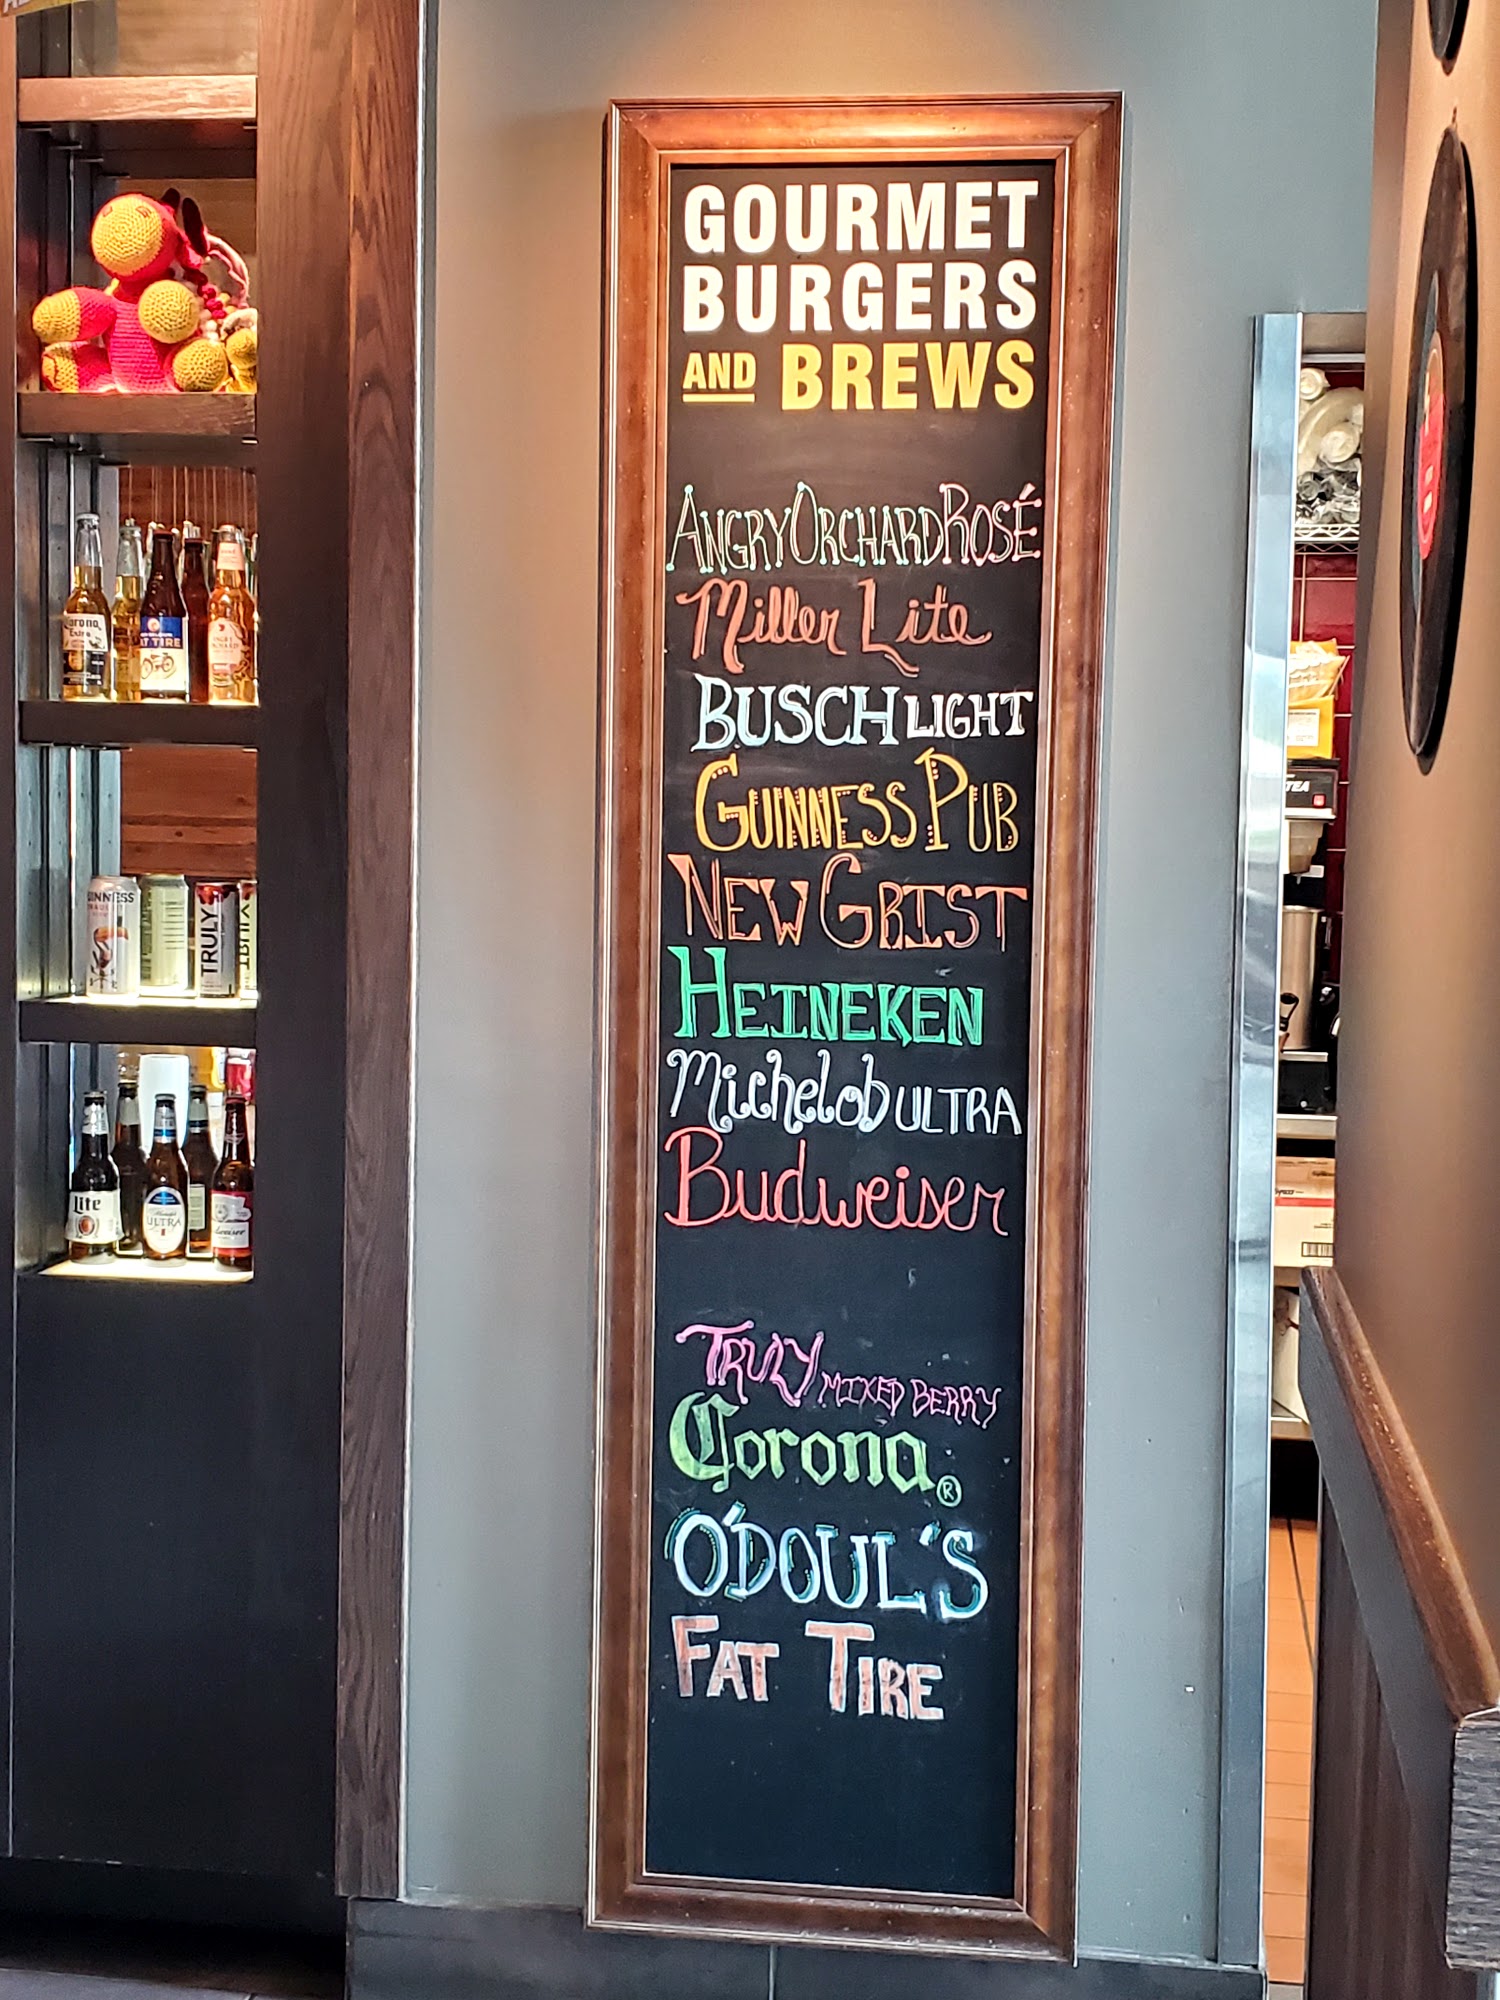 GOURMET
BURGERS
AND BREWS
ANGRY ORCHARD ROSÉ
Miller Lite
BUSCH LIGHT
GUINNESS PUB
NEW GRIST
HEINEKEN
Michelob ULTRA
Budweiser
TRULY MIXED BERRY
Corona®
O'DOUL'S
FAT TIRE
Corona
Extra
AT TIRE
ANGRY
ORCHARD
UINNESS
TRULY
Lite
ULTRA
TEA